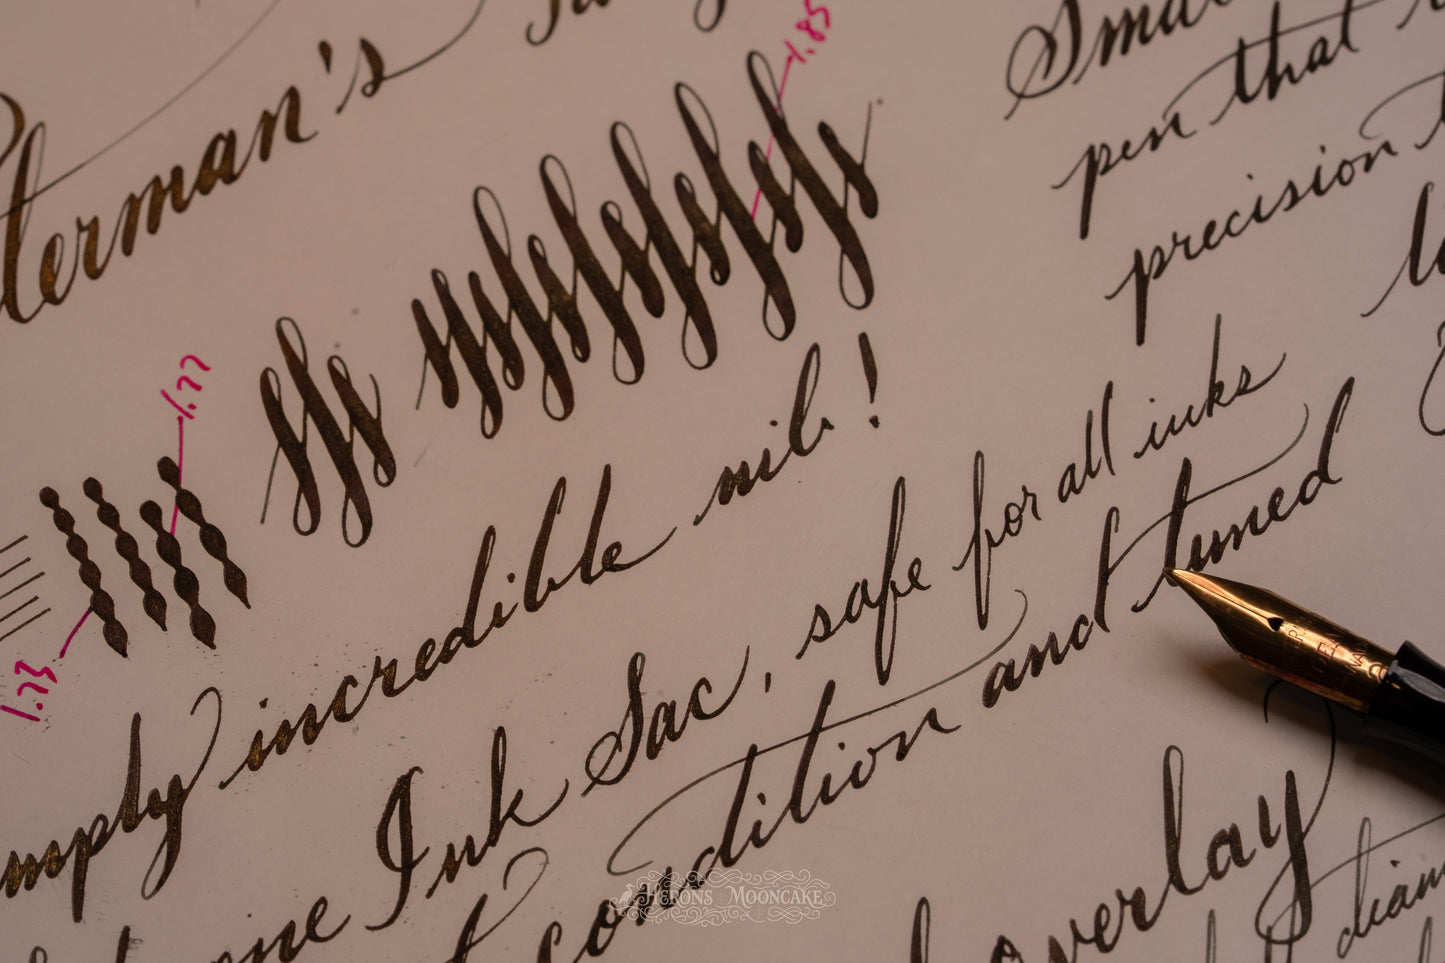 terman's
1.85
1.77
1.73
mply incredible nib !
Ink Sac, safe for all inks
condition and tuned
overlay
Small
pen that
precision
HERONS MOONCAKE